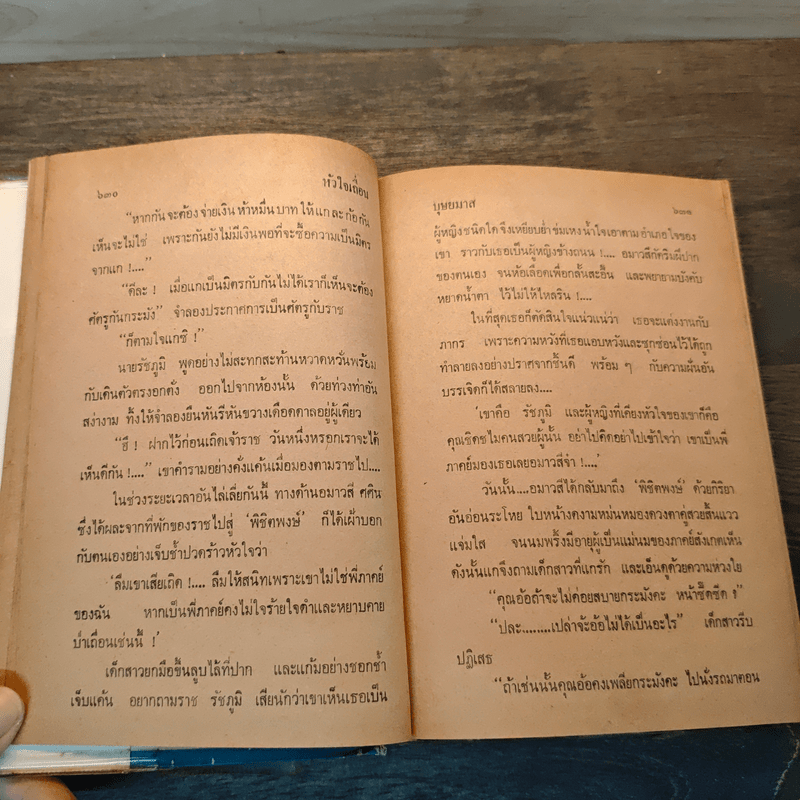 ๖๓๐ หัวใจเถื่อน
“หากกันจะต้องจ่ายเงินห้าหมื่นบาทให้แกละก้อกัน
เห็นจะไม่ใช่ เพราะกันยังไม่มีเงินพอที่จะซื้อความเป็นมิตร
จากแก !....”
“ดีละ ! เมื่อแกเป็นมิตรกับกันไม่ได้เราก็เห็นจะต้อง
ศัตรูกันกระมัง” จำลองประกาศการเป็นศัตรูกับราช
“ก็ตามใจแกซิ !”
นายรัชภูมิ พูดอย่างไม่สะทกสะท้านหวาดหวั่นพร้อม
กับเดินตัวตรงอกตั้ง ออกไปจากห้องนั้น ด้วยท่วงท่าอัน
สง่างาม ทิ้งให้จำลองยืนหันรีหันขวางเดือดดาลอยู่ผู้เดียว
“ฮึ ! ฝากไว้ก่อนเถิดเจ้าราช วันหนึ่งหรอกเราจะได้
เห็นดีกัน !....” เขาคำรามอย่างคั่งแค้นเมื่อมองตามราชไป....
ในช่วงระยะเวลาอันไล่เลี่ยกันนี้ ทางด้านอมาวสี ศศิน
ซึ่งได้ผละจากที่พักของราชไปสู่ ‘พิชิตพงษ์’ ก็ได้เฝ้าบอก
กับตนเองอย่างเจ็บช้ำปวดร้าวหัวใจว่า
‘ลืมเขาเสียเถิด !.... ลืมให้สนิทเพราะเขาไม่ใช่พี่ภาคย์
ของฉัน หากเป็นพี่ภาคย์คงไม่ใจร้ายใจดำและหยาบคาย
ป่าเถื่อนเช่นนี้ !’
เด็กสาวยกมือขึ้นลูบไล้ที่ปาก และแก้มอย่างชอกช้ำ
เจ็บแค้น อยากถามราช รัชภูมิ เสียนักว่าเขาเห็นเธอเป็น
บุษยมาส ๖๓๑
ผู้หญิงชนิดใด จึงเหยียบย่ำ ข่มเหงน้ำใจเอาตามอำเภอใจของ
เขา ราวกับเธอเป็นผู้หญิงข้างถนน !.... อมาวสีกัดริมฝีปาก
ของตนเอง จนห้อเลือดเพื่อกลั้นสะอื้น และพยายามบังคับ
หยาดน้ำตา ไว้ไม่ให้ไหลริน !....
ในที่สุดเธอก็ตัดสินใจแน่วแน่ว่า เธอจะแต่งงานกับ
ภากร เพราะความหวังที่เธอแอบหวังและซุกซ่อนไว้ได้ถูก
ทำลายลงอย่างปราศจากชิ้นดี พร้อม ๆ กับความฝันอัน
บรรเจิดก็ได้สลายลง....
‘เขาคือ รัชภูมิ และผู้หญิงที่เคียงหัวใจของเขาก็คือ
คุณเชิดชไมคนสวยผู้นั้น อย่าไปคิดอย่าไปเข้าใจว่า เขาเป็นพี่
ภาคย์มองเธอเลยอมาวสีจ๋า !....’
วันนั้น....อมาวสีได้กลับมาถึง ‘พิชิตพงษ์’ ด้วยกิริยา
อันอ่อนระโหย ใบหน้าคงามหม่นหมองดวงตาคู่สวยสิ้นแวว
แจ่มใส จนนมพริ้งมีอายุผู้เป็นแม่นมของภาคย์สังเกตเห็น
ดังนั้นแกจึงถามเด็กสาวที่แกรัก และเอ็นดูด้วยความห่วงใย
“คุณอ้อถ้าจะไม่ค่อยสบายกระมังคะ หน้าซี๊ดซีด ?”
“ปละ.........เปล่าจ้ะอ้อไม่ได้เป็นอะไร” เด็กสาวรีบ
ปฏิเสธ
“ถ้าเช่นนั้นคุณอ้อคงเพลียกระมังคะ ไปนั่งรถมาตอน